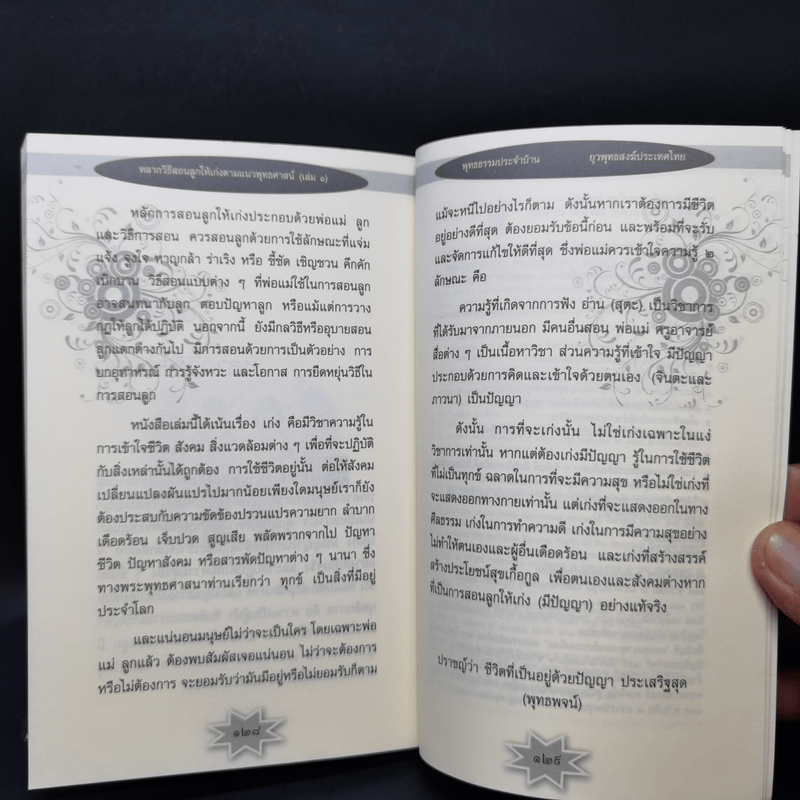 หลากวิธีสอนลูกให้เก่งตามแนวพุทธศาสน์ (เล่ม ๑)
หลักการสอนลูกให้เก่งประกอบด้วยพ่อแม่ ลูก
และวิธีการสอน ควรสอนลูกด้วยการใช้ลักษณะที่แจ่ม
แจ้ง จูงใจ หาญกล้า ร่าเริง หรือ ชี้ชัด เชิญชวน คึกคัก
เบิกบาน วิธีสอนแบบต่าง ๆ ที่พ่อแม่ใช้ในการสอนลูก
อาจสนทนากับลูก ตอบปัญหาลูก หรือแม้แต่การวาง
กฎให้ลูกได้ปฏิบัติ นอกจากนี้ ยังมีกลวิธีหรืออุบายสอน
ลูกแตกต่างกันไป มีการสอนด้วยการเป็นตัวอย่าง การ
ยกอุทาหรณ์ การรู้จังหวะ และโอกาส การยืดหยุ่นวิธีใน
การสอนลูก
หนังสือเล่มนี้ได้เน้นเรื่อง เก่ง คือมีวิชาความรู้ใน
การเข้าใจชีวิต สังคม สิ่งแวดล้อมต่าง ๆ เพื่อที่จะปฏิบัติ
กับสิ่งเหล่านั้นได้ถูกต้อง การใช้ชีวิตอยู่นั้น ต่อให้สังคม
เปลี่ยนแปลงผันแปรไปมากน้อยเพียงใดมนุษย์เราก็ยัง
ต้องประสบกับความขัดข้องปรวนแปรความยาก ลำบาก
เดือดร้อน เจ็บปวด สูญเสีย พลัดพรากจากไป ปัญหา
ชีวิต ปัญหาสังคม หรือสารพัดปัญหาต่าง ๆ นานา ซึ่ง
ทางพระพุทธศาสนาท่านเรียกว่า ทุกข์ เป็นสิ่งที่มีอยู่
ประจำโลก
และแน่นอนมนุษย์ไม่ว่าจะเป็นใคร โดยเฉพาะพ่อ
แม่ ลูกแล้ว ต้องพบสัมผัสเจอแน่นอน ไม่ว่าจะต้องการ
หรือไม่ต้องการ จะยอมรับว่ามันมีอยู่หรือไม่ยอมรับก็ตาม
๑๒๘
พุทธธรรมประจำบ้าน ยุวพุทธสงฆ์ประเทศไทย
แม้จะหนีไปอย่างไรก็ตาม ดังนั้นหากเราต้องการมีชีวิต
อยู่อย่างดีที่สุด ต้องยอมรับข้อนี้ก่อน และพร้อมที่จะรับ
และจัดการแก้ไขให้ดีที่สุด ซึ่งพ่อแม่ควรเข้าใจความรู้ ๒
ลักษณะ คือ
ความรู้ที่เกิดจากการฟัง อ่าน (สุตะ) เป็นวิชาการ
ที่ได้รับมาจากภายนอก มีคนอื่นสอน พ่อแม่ ครูอาจารย์
สื่อต่าง ๆ เป็นเนื้อหาวิชา ส่วนความรู้ที่เข้าใจ มีปัญญา
ประกอบด้วยการคิดและเข้าใจด้วยตนเอง (จินตะและ
ภาวนา) เป็นปัญญา
ดังนั้น การที่จะเก่งนั้น ไม่ใช่เก่งเฉพาะในแง่
วิชาการเท่านั้น หากแต่ต้องเก่งมีปัญญา รู้ในการใช้ชีวิต
ที่ไม่เป็นทุกข์ ฉลาดในการที่จะมีความสุข หรือไม่ใช่เก่งที่
จะแสดงออกทางกายเท่านั้น แต่เก่งที่จะแสดงออกในทาง
ศีลธรรม เก่งในการทำความดี เก่งในการมีความสุขอย่าง
ไม่ทำให้ตนเองและผู้อื่นเดือดร้อน และเก่งที่สร้างสรรค์
สร้างประโยชน์สุขเกื้อกูล เพื่อตนเองและสังคมต่างหาก
ที่เป็นการสอนลูกให้เก่ง (มีปัญญา) อย่างแท้จริง
ปราชญ์ว่า ชีวิตที่เป็นอยู่ด้วยปัญญา ประเสริฐสุด
(พุทธพจน์)
๑๒๙